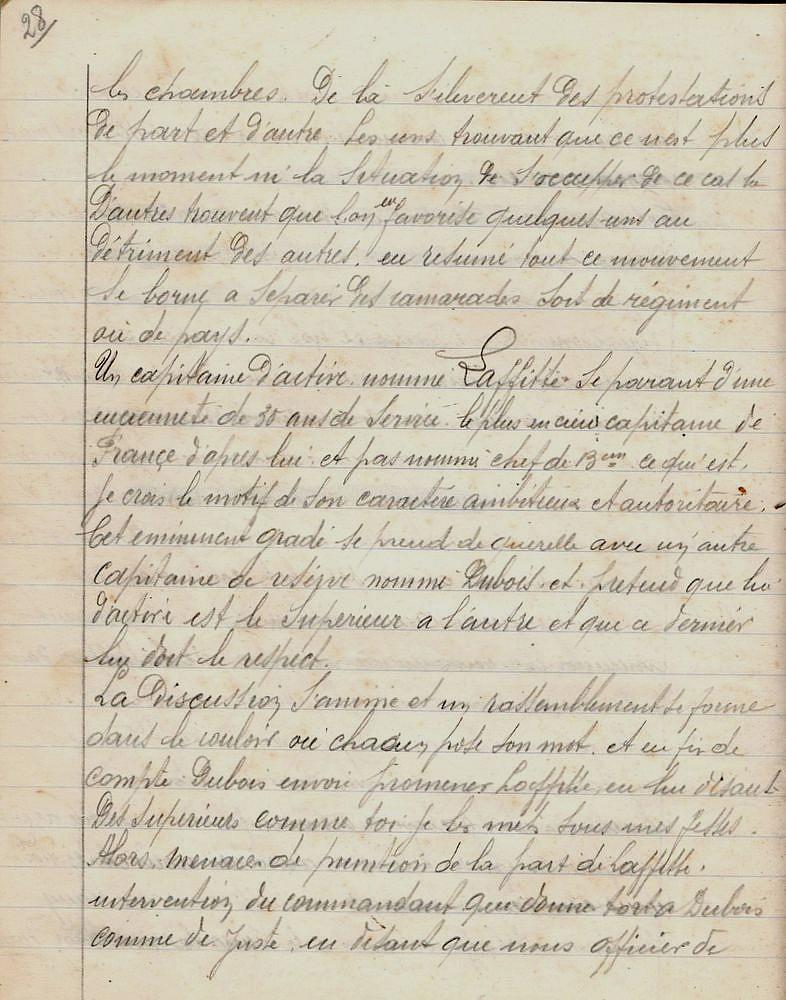 28/
les chambres. De là s'eleverent des protestations
de part et d'autre. Les uns trouvant que ce n'est plus
le moment ni la situation de s'occupper de ce cas là
D'autres trouvent que l'on en favorise quelques-uns au
détriment des autres. en resumé tout ce mouvement
se borne a separer des camarades soit de régiment
ou de pays.
Un capitaine d'active. nommé Laffitte se parant d'une
ancienneté de 30 ans de service le plus ancien capitaine de
France d'apres lui et pas nommé chef de Bon ce qui est,
je crois le motif de son caractère ambitieux et autoritaire.
Cet eminement gradé se prend de querelle avec un autre
capitaine de reserve nommé Dubois et pretend que lui
d'active est le superieur a l'autre et que ce dernier
lui doit le respect.
La Discussion s'anime et un rassemblement se forme
dans le couloir ou chacun pose son mot. et en fin de
compte Dubois envoie promener Laffitte en lui disant
Des superieurs comme toi je les mets sous mes fesses.
Alors menaces de punition de la part de Laffitte.
intervention du commandant qui donne tort a Dubois
comme de juste en disant que nous officier de